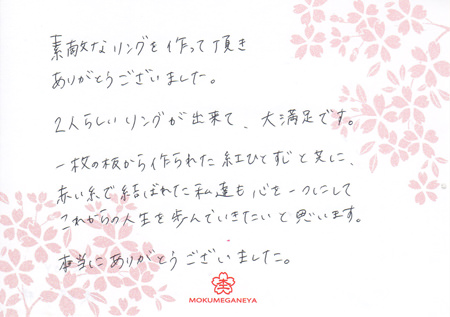 素敵なリングを作って頂き
ありがとうございました。
2人らしいリングが出来て、大満足です。
一枚の板から作られた紅ひとすじと共に、
赤い糸で結ばれた私達も心を一つにして
これからの人生を歩んでいきたいと思います。
本当にありがとうございました。
MOKUMEGANEYA